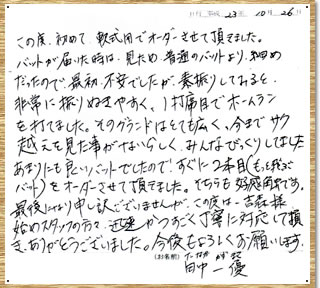 23 10月 26
この度、初めて、軟式用でオーダーさせて頂きました。
バットが届いた時は、見ため普通のバットより、細め
だったので、最初、不安でしたが、素振りしてみると、
非常に振りぬきやすく、1打席目でホームラン
を打てました。そのグランドはとても広く、今までサク
越えを見た事がないらしく、みんなびっくりしてました。
あまりにも良いバットでしたので、すぐに2本目(もっと飛ぶ
バット)をオーダーさせて頂きました。そちらも好感触です。
最後になり申し訳ございませんが、この度は、吉森様
始めスタッフの方々、迅速かつすごく丁寧に対応して頂
き、ありがとうございました。今後もよろしくお願いします。
(お名前) 田中 一優